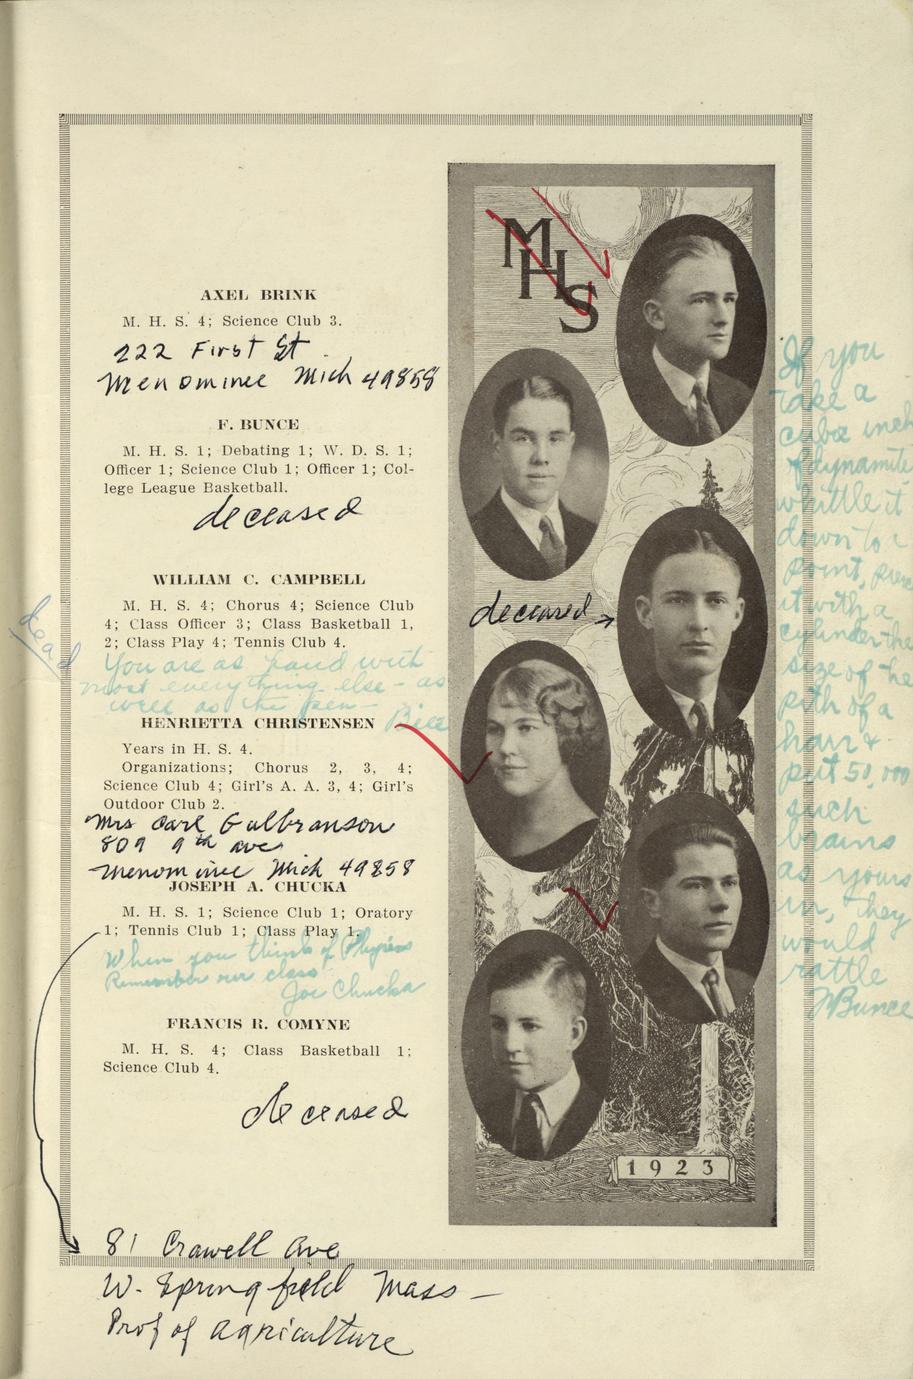 AXEL BRINK
M. H. S. 4; Science Club 3.
222 First St.
Menominee Mich 49858
F. BUNCE
M. H. S. 1; Debating 1; W. D. S. 1;
Officer 1; Science Club 1; Officer 1; Col-
lege League Basketball.
deceased
WILLIAM C. CAMPBELL
M. H. S. 4; Chorus 4; Science Club
4; Class Officer 3; Class Basketball 1,
2; Class Play 4; Tennis Club 4.
dead
You are as good with
most everything else - as
well as the pen -
Bill
HENRIETTA CHRISTENSEN
Years in H. S. 4.
Organizations; Chorus 2, 3, 4;
Science Club 4; Girl's A. A. 3, 4; Girl's
Outdoor Club 2.
Mrs Carl Gulbranson
809 9th ave
Menominee Mich 49858
JOSEPH A. CHUCKA
M. H. S. 1; Science Club 1; Oratory
1; Tennis Club 1; Class Play 1.
When you think of Physics
Remember our class!
Joe Chucka
FRANCIS R. COMYNE
M. H. S. 4; Class Basketball 1;
Science Club 4.
deceased
81 Crawell Ave
W. Springfield Mass -
Prof of agriculture
MHS
deceased
1923
If you
take a
cube inch
of dynamite
whittle it
down to a
point,
it with a
cylinder the
size of the
pith of a
hair &
put 50,000
such
brains
as yours
in, they
would
rattle
Bunce